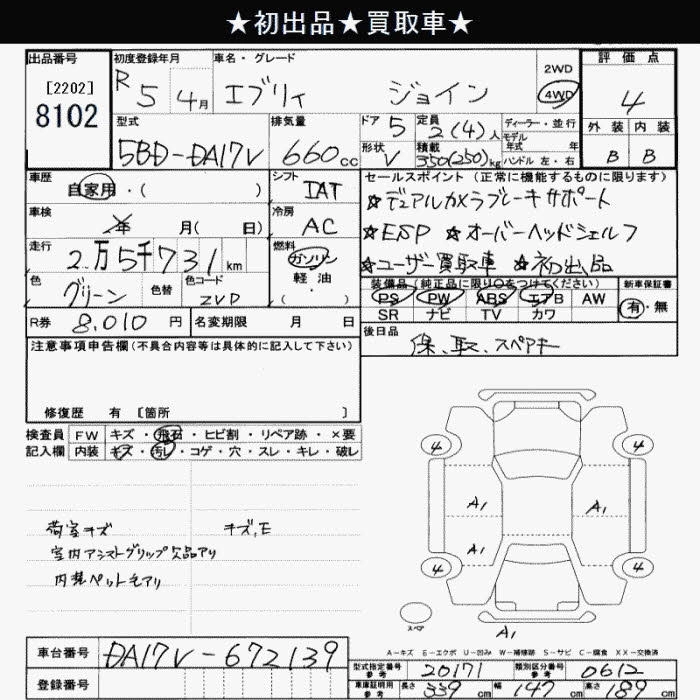 ★初出品★買取車★
出品番号 初度登録年月 車名・グレード 2WD 評価点
[2202]
8102
R 5 4月 エブリイ ジョイン 4WD 4
型式 排気量 ドア 5 定員 2(4)人 ディーラー・並行
モデル年式 年 外装 内装
5BD-DA17V 660cc 形状 V 積載 350(250)kg ハンドル 左・右 B B
車歴 自家用・( ) シフト IAT セールスポイント (正常に機能するものに限ります)
☆デュアルカメラブレーキサポート
車検 年 月( 日) 冷房 AC ☆ESP ☆オーバーヘッドシェルフ
走行 2万5千731km 燃料 ガソリン 軽油・( ) ☆ユーザー買取車 ☆初出品
色 グリーン 色替 色コード ZVD 装備品(純正品に限り○をつけてください) 新車保証書
PS PW ABS エアB AW 有・無
SR ナビ TV カワ
R券 8,010円 名変期限 月 日 後日品
保、取、スペアキー
注意事項申告欄(不具合内容等は具体的に記入して下さい)
修復歴 有 [箇所 ]
検査員記入欄 FW キズ・飛石・ヒビ割・リペア跡・×要
内装 キズ・汚し・コゲ・穴・スレ・キレ・破レ
4 4
A1 A1
A1
4 4
荷室キズ キズ、E
室内アシストグリップ欠品アリ
内装ペット毛アリ
スペア
A1
A-キズ E-エクボ U-凹み W-補修跡 S-サビ C-腐食 XX-交換済
車台番号 DA17V-672139
登録番号
型式指定番号 参考 20171 類別区分番号 参考 0612
車庫証明用 参考 長さ 339cm 幅 147cm 高さ 189cm